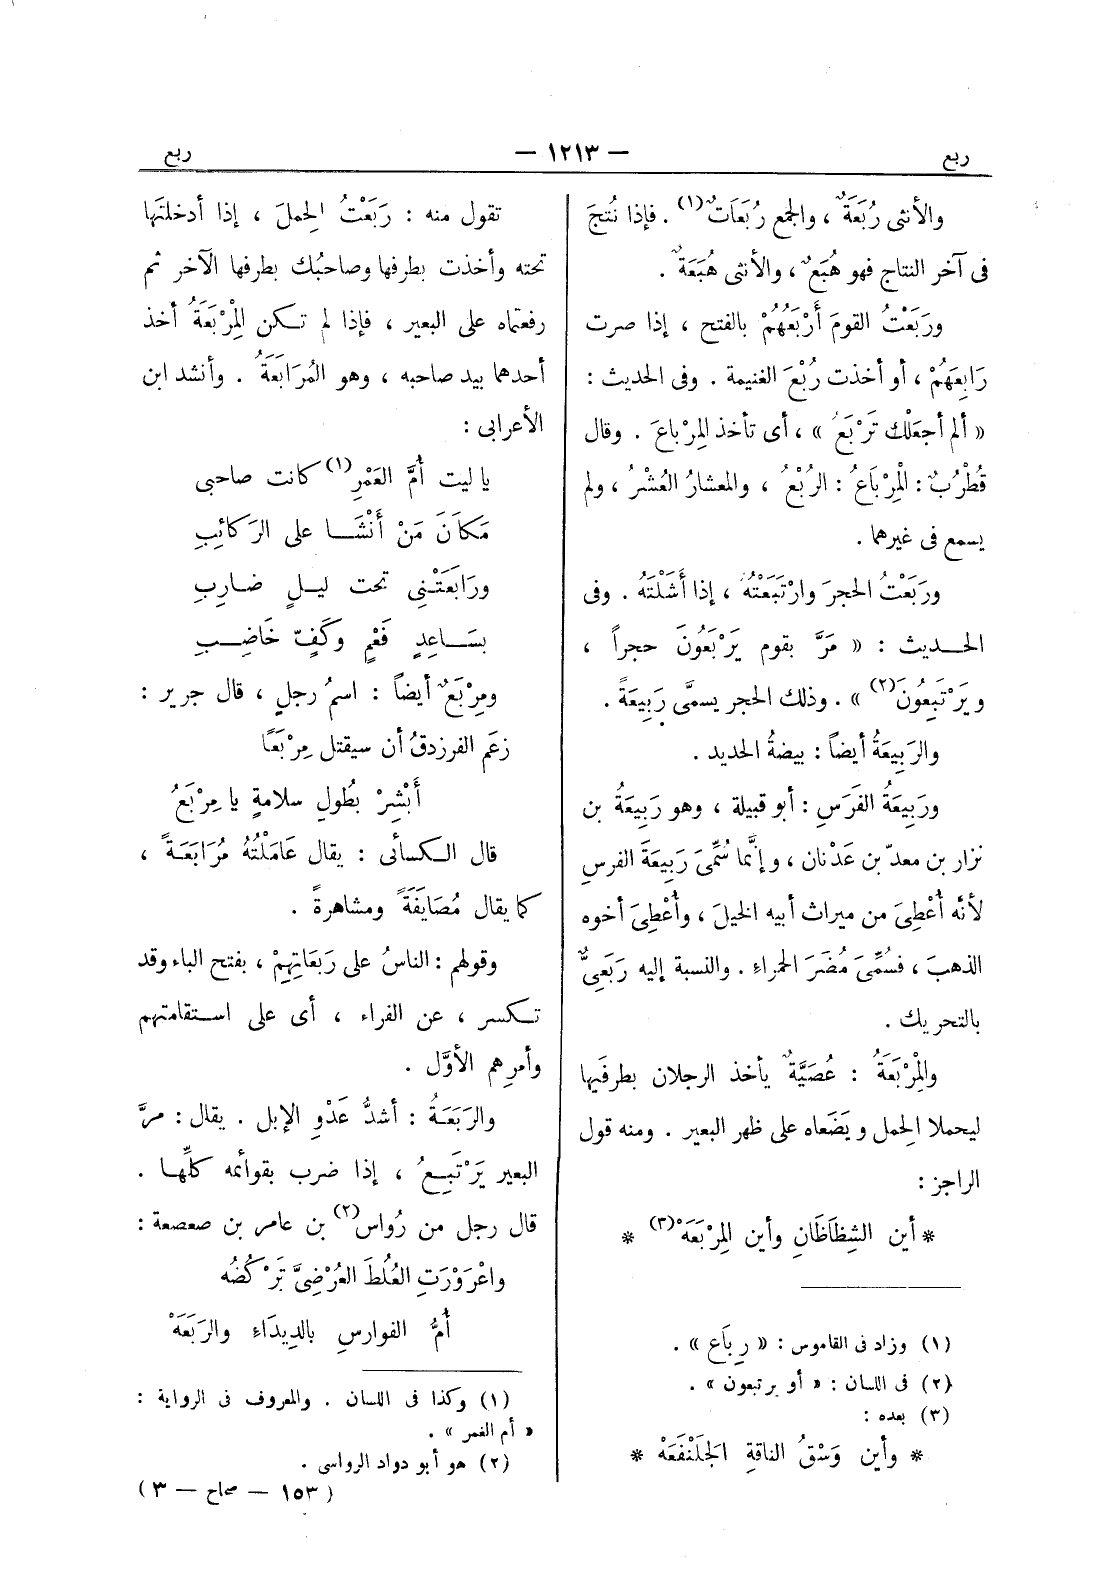 ربع
— ١٢١٣ —
ربع
والأنثى رُبَعَةٌ ، والجمع رُبَعَاتٌ (١) . فإذا نُتِجَ
فى آخر النتاج فهو هُبَعٌ ، والأنثى هُبَعَةٌ .
ورَبَعْتُ القومَ أَرْبَعُهُمْ بالفتح ، إذا صرت
رَابِعَهُمْ ، أو أخذت رُبْعَ الغنيمة . وفى الحديث :
« ألم أجعلْك تَرْبَعُ » ، أى تأخذ المِرْباعَ . وقال
قُطْرُبٌ : المِرْبَاعُ : الرُبْعُ ، والمعشارُ العُشْرُ ، ولم
يسمع فى غيرهما .
ورَبَعْتُ الحجرَ وارْتَبَعْتُهُ ، إذا أَشَلْتَهُ . وفى
الحديث : « مَرَّ بقوم يَرْبَعُونَ حجراً ،
ويَرْتَبِعُونَ (٢) » . وذلك الحجر يسمَّى رَبِيعَةً .
والرَبِيعَةُ أيضاً : بيضةُ الحديد .
ورَبِيعَةُ الفَرَسِ : أبو قبيلة ، وهو رَبِيعَةُ بن
نزار بن معدّ بن عَدْنان ، وإنَّما سُمِّىَ رَبِيعَةَ الفرسِ
لأنَّه أُعْطِىَ من ميراث أبيه الخيلَ ، وأُعْطِىَ أخوه
الذهبَ ، فسُمِّىَ مُضَرَ الحمراءِ . والنسبة إليه رَبَعِىٌّ
بالتحريك .
والمِرْبَعَةُ : عُصَيَّةٌ يأخذ الرجلان بطرفَيها
ليحملا الحِمل ويَضَعاه على ظهر البعير . ومنه قول
الراجز :
* أين الشِظَاظَانِ وأين المِرْبَعَهْ (٣) *
(١) وزاد فى القاموس : « رِبَاع » .
(٢) فى اللسان : « أو يرتبعون » .
(٣) بعده :
* وأين وَسْقُ الناقةِ الجَلَنْفَعَهْ *
تقول منه : رَبَعْتُ الحِملَ ، إذا أدخلتَها
تحته وأخذت بطرفها وصاحبُك بطرفها الآخر ثم
رفعتماه على البعير ، فإذا لم تكن المِرْبَعَةُ أخذ
أحدهما بيد صاحبه ، وهو المُرَابَعَةُ . وأنشد ابن
الأعرابى :
يا ليت أُمَّ العَمْرِ (١) كانت صاحبى
مَكَانَ مَنْ أَنْشَا على الرَكائِبِ
ورَابَعَتْنِى تحت ليلٍ ضارِبِ
بسَاعِدٍ فَعْمٍ وكَفٍّ خَاضِبِ
ومِرْبَعٌ أيضاً : اسمُ رجلٍ ، قال جرير :
زعَم الفرزدقُ أن سيقتل مِرْبَعًا
أَبْشِرْ بطُولِ سلامةٍ يا مِرْبَعُ
قال الكسائى : يقال عَامَلْتُهُ مُرَابَعَةً ،
كما يقال مُصَايَفَةً ومشاهرةً .
وقولهم : الناسُ على رَبَعَاتِهِمْ ، بفتح الباء وقد
تكسر ، عن الفراء ، أى على استقامتهم
وأمرِهم الأوَّل .
والرَبَعَةُ : أشدُّ عَدْوِ الإبل . يقال : مرَّ
البعير يَرْتَبِعُ ، إذا ضرب بقوائمه كلِّها .
قال رجل من رُواس (٢) بن عامر بن صعصعة :
واعْرَوْرَتِ العُلُطَ العُرْضِىَّ تَرْكُضُه
أُمُّ الفوارسِ بالدِيدَاءِ والرَبَعَهْ
(١) وكذا فى اللسان . والمعروف فى الرواية :
« أم الغمر » .
(٢) هو أبو دواد الرواسى .
( ١٥٣ — صحاح — ٣ )